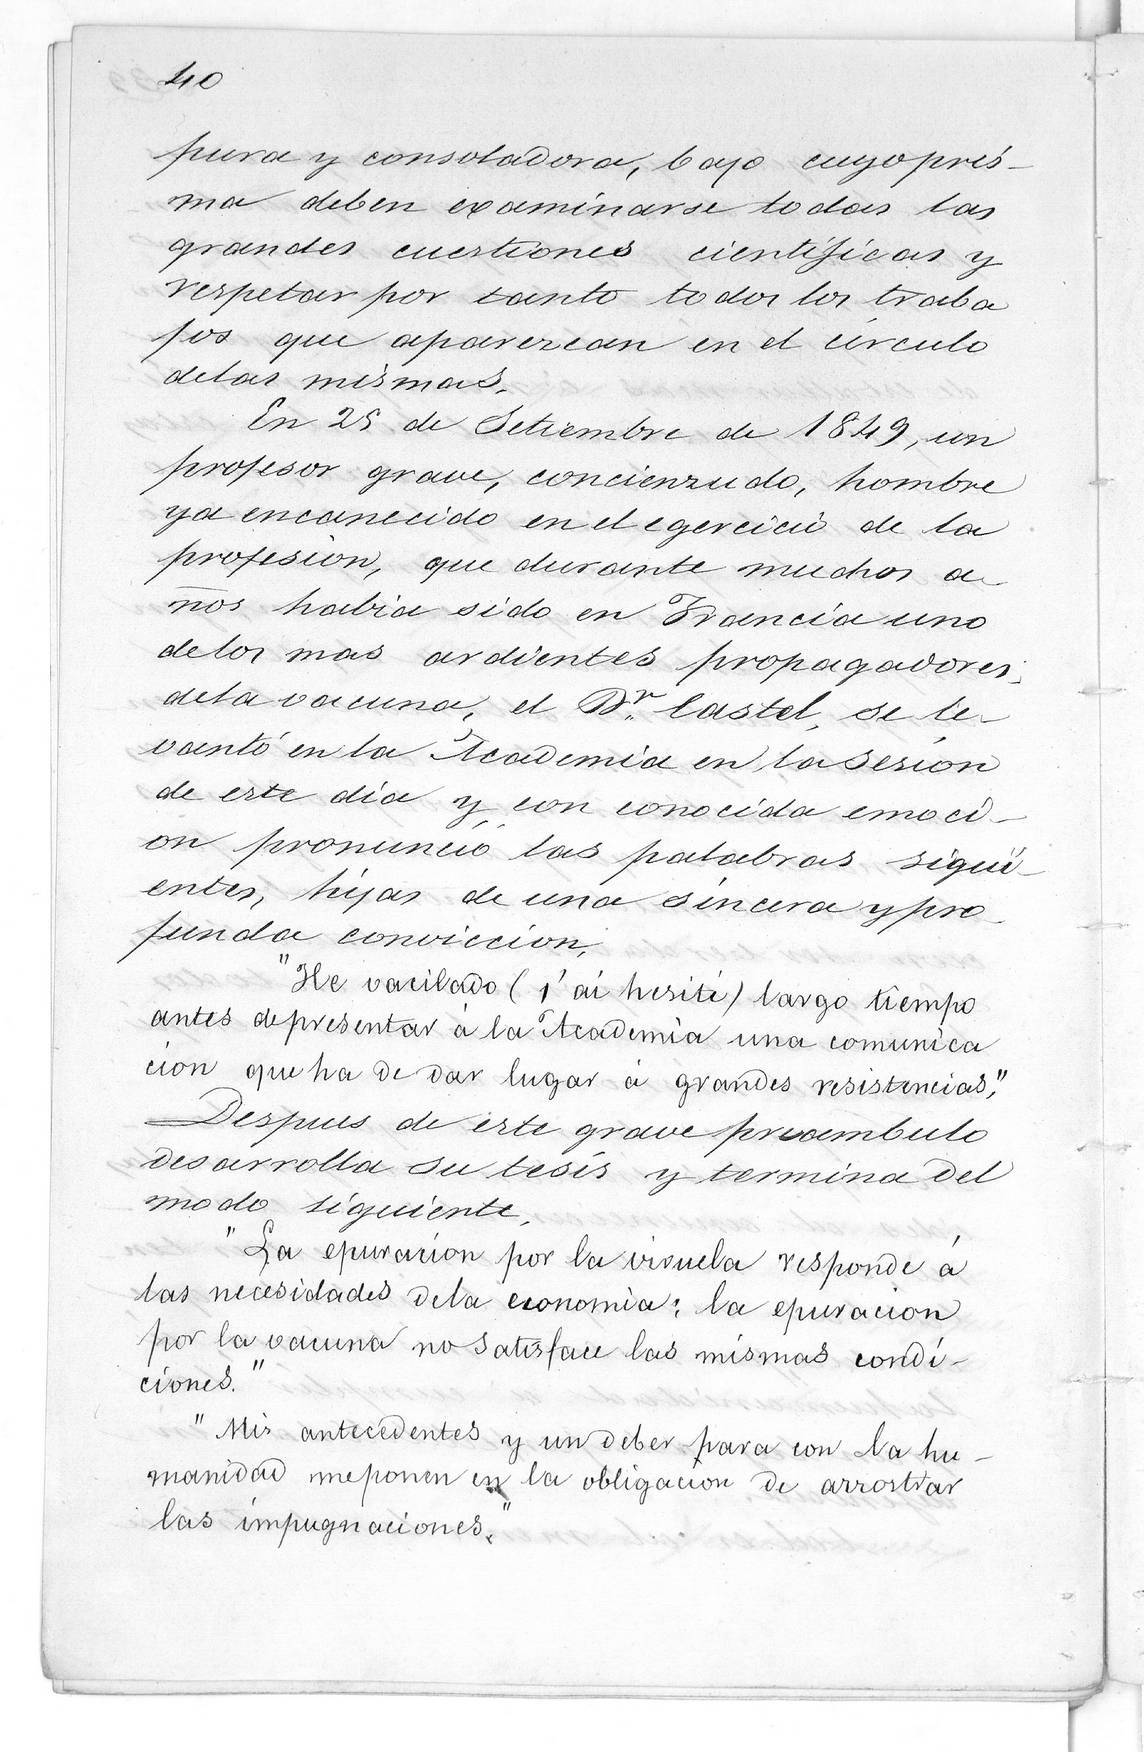 40
pura y consoladora, bajo cuyo pris-
ma deben examinarse todas las
grandes cuestiones científicas y
respetar por tanto todos los traba
jos que aparezcan en el círculo
de las mismas.
En 25 de Setiembre de 1849, un
profesor grave, concienzudo, hombre
ya encanecido en el egercicio de la
profesion, que durante muchos a-
ños habia sido en Francia uno
de los mas ardientes propagadores
de la vacuna, el Dr. Castel, se le-
vantó en la Academia en la sesion
de este dia y con conocida emoci-
on pronunció las palabras sigui-
entes, hijas de una sincera y pro-
funda conviccion.
"He vacilado (j'ai hesité) largo tiempo
antes de presentar á la Academia una comunica
cion que ha de dar lugar á grandes resistencias."
Despues de este grave preambulo
desarrolla su tesis y termina del
modo siguiente.
"La epuracion por la viruela responde á
las necesidades de la economia; la epuracion
por la vacuna no satisface las mismas condi-
ciones."
"Mis antecedentes y un deber para con la hu-
manidad me ponen en la obligacion de arrostrar
las impugnaciones."